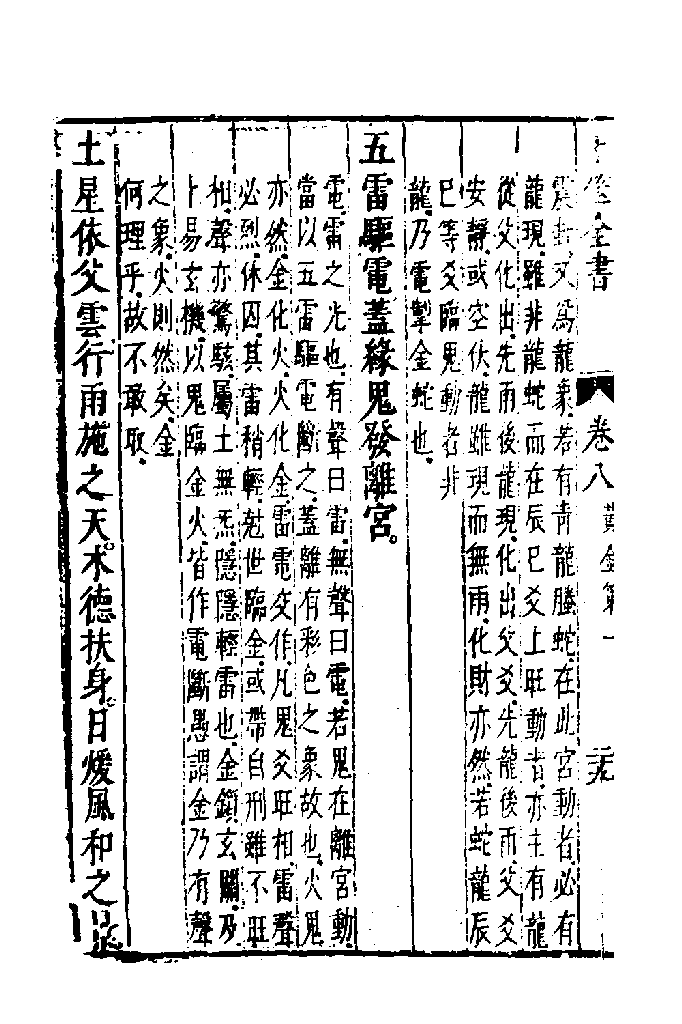 卜筮全書 卷八 黃金策一 三九
震卦又爲龍象若有青龍螣蛇在此宮動者必有
龍現雖非龍蛇而在辰巳爻上旺動者亦主有龍
從父化出先雨後龍現化出父爻先龍後雨父爻
安靜或空伏龍雖現而無雨化財亦然若蛇龍辰
巳等爻臨鬼動者非
龍乃電掣金蛇也
五雷驅電蓋緣鬼發離宮
電雷之光也有聲曰雷無聲曰電若鬼在離宮動
當以五雷驅電斷之蓋離有彩色之象故也火鬼
亦然金化火火化金雷電交作凡鬼爻旺相雷聲
必烈休囚其雷稍輕尅世臨金或帶自刑雖不旺
相聲亦驚駭屬土無炁隱隱輕雷也金鎖玄關及
卜易玄機以鬼臨金火皆作電斷愚謂金乃有聲
之象火則然矣金
何理乎故不敢取
土星依父雲行雨施之天木德扶身日煖風和之景